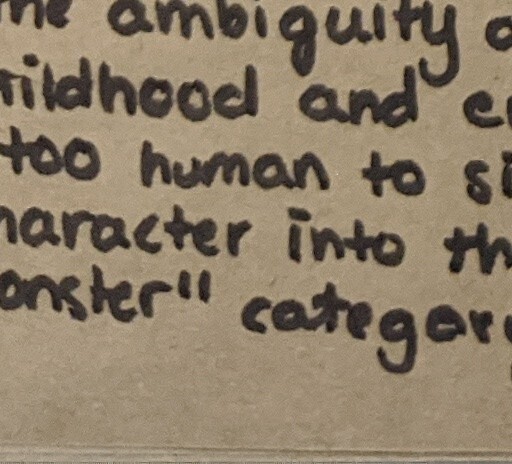 he ambiguity o
hildhood and e
too human to si
haracter into th
onster" category